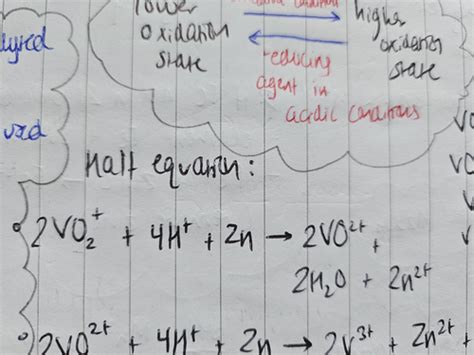 lower
higher
oxidation
state
oxidation
state
reducing
agent in
acidic conditions
Half equation:
2VO₂⁺ + 4H⁺ + Zn → 2VO²⁺ +
2H₂O + Zn²⁺
2VO²⁺ + 4H⁺ + Zn → 2V³⁺ + Zn²⁺ +